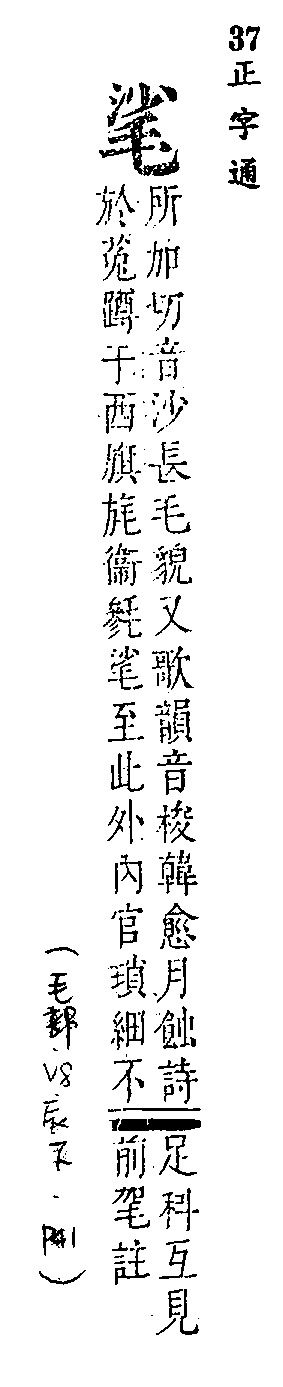 37正字通
㲚
所加切音沙長毛貌又歌韻音梭韓愈月蝕詩
於菟蹲于西旗旄衞毿㲚至此外內官瑣細不
足科互見
前毠註
(毛部.VS辰下.P41)